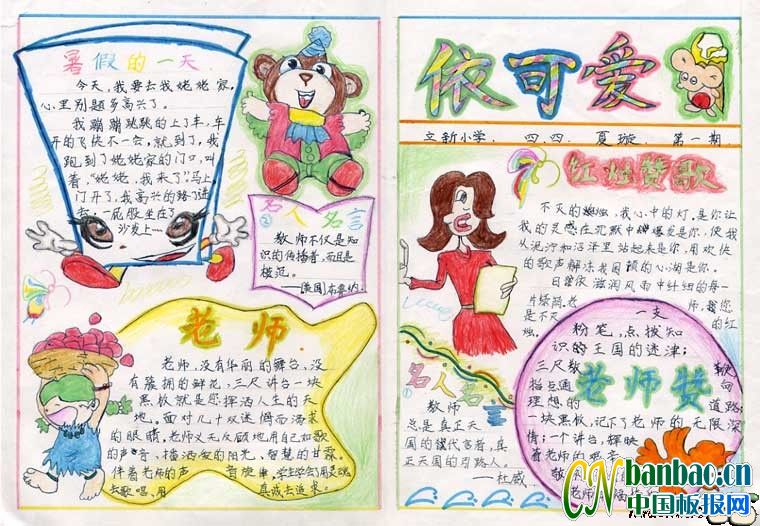 暑假的一天
今天,我要去我姥姥家,
心里别提多高兴了。
我蹦蹦跳跳的上了车,车
开的飞快不一会,就到了,我
跑到了姥姥家的门口,叫
着,“姥姥,我来了”马上,
门开了,我高兴的
去,一屁股坐在了
沙发上……
名人名言
②
教师不仅是知
识的传播者,而且是
模范。
——[美国]布鲁纳
老师
老师,没有华丽的舞台,没
有簇拥的鲜花,三尺讲台一块
黑板就是您挥洒人生的天
地。面对几十双迷惘而渴求
的眼睛,老师义无反顾地用自己如歌
的声音、播洒爱的阳光、智慧的甘霖。
伴着老师的声音
去歌唱、用真诚去追求。
依可爱
立新小学、四四、夏璇、第一期
红烛赞歌
不灭的烛,我心中的灯。是你让
我的灵感在沉默中爆发是你,使我
从泥泞和沼泽里站起来是你,用欢快
的歌声解法我困顿的心湖是你。
日
片绿荫。老师,我您
是不灭的红
烛。
名人名言
①
教师
总是真正天
国的代言者,真
正天国的引路人。
——杜威
老师赞
一支
粉笔,点拨知
识的王国的迷津;
三尺教鞭
指点通向
理想的道路;
一块黑板,记下了老师的无限深
情;一个讲台,辉映
着老师的
CNbanbao.cn
中国板报网